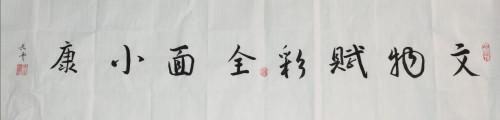 文物赋彩全面小康